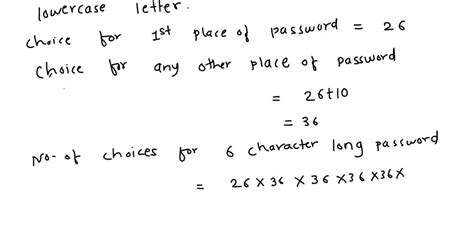 lowercase letter.
choice for 1st place of password = 26
Choice for any other place of password
= 26+10
= 36
No- of choices for 6 character long password
= 26 × 36 × 36 × 36 × 36 ×